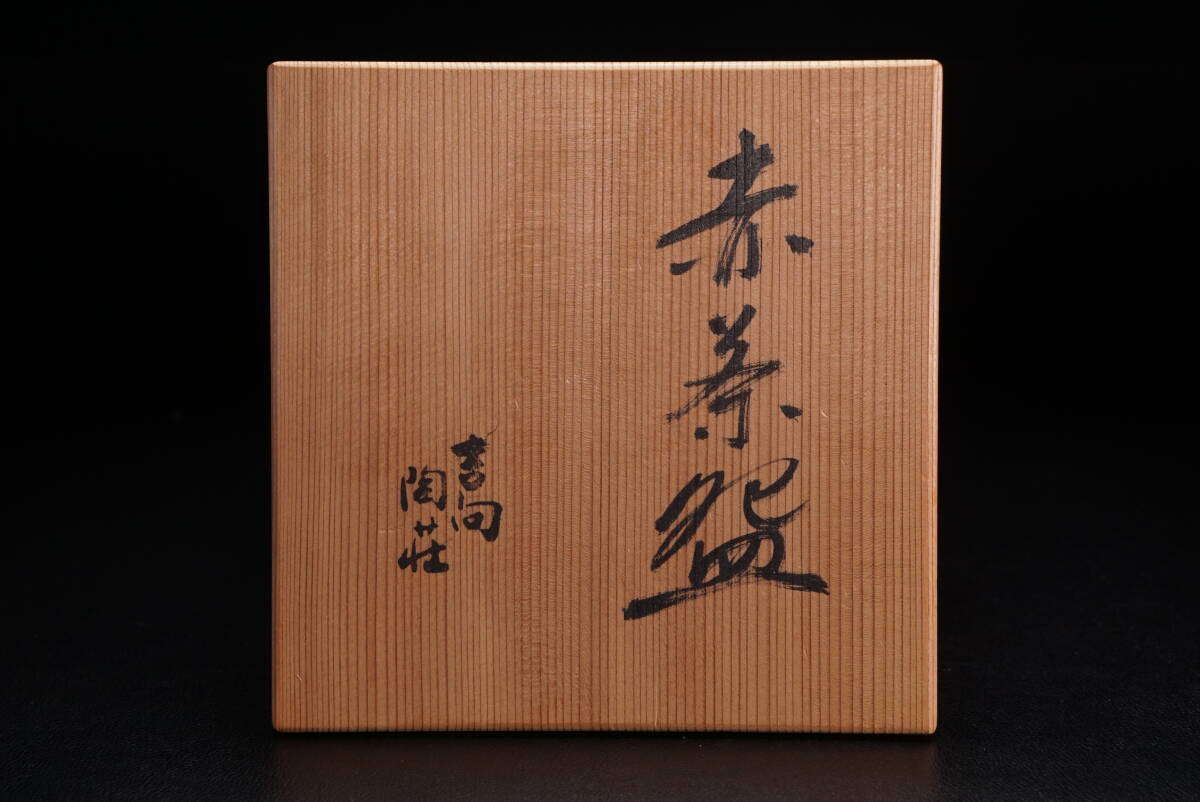 赤茶盌
吉向
陶荘